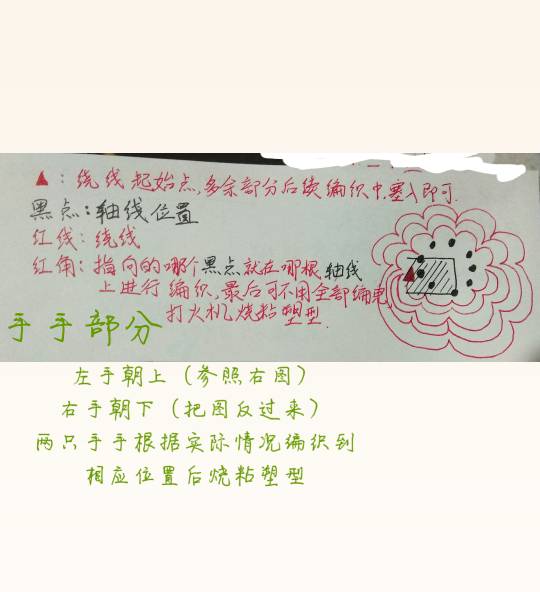 ▲：绕线起始点,多余部分后续编织中塞入即可.
黑点：轴线位置
红线：绕线
红角：指向的哪个黑点就在哪根轴线
上进行编织,最后可不用全部编完,
打火机烧粘塑型.
手手部分
左手朝上（参照右图）
右手朝下（把图反过来）
两只手手根据实际情况编织到
相应位置后烧粘塑型